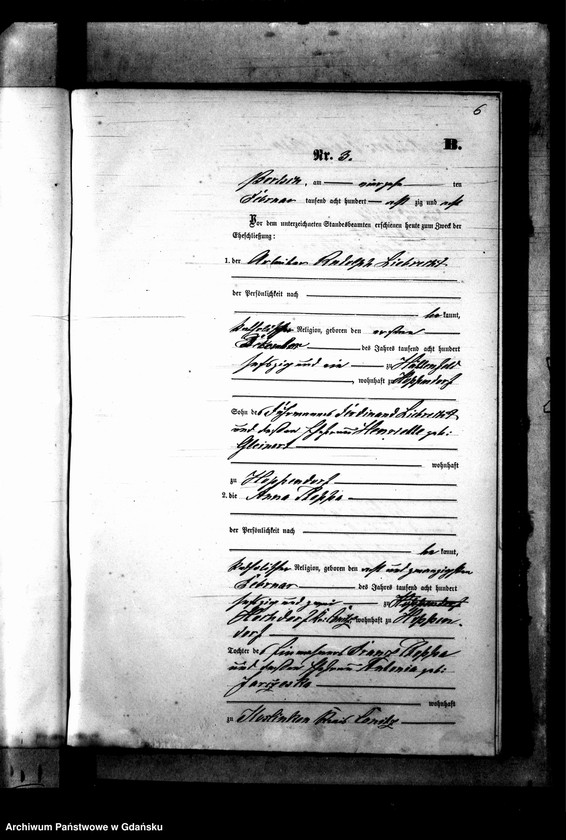 6
B.
Nr. 3.
am ten
Februar tausend acht hundert acht zig und acht
Vor dem unterzeichneten Standesbeamten erschienen heute zum Zweck der
Eheschließung:
1. der Arbeiter Rudolph Liebrecht
der Persönlichkeit nach
be kannt,
katholischer Religion, geboren den ersten
Dezember des Jahres tausend acht hundert
sechszig und ein zu
, wohnhaft zu Hoppendorf
Sohn des Fuhrmanns Ferdinand Liebrecht
und dessen Ehefrau Henriette geb:
wohnhaft
zu Hoppendorf
2. die Anna
der Persönlichkeit nach
be kannt,
katholischer Religion, geboren den acht und zwanzigsten
Februar des Jahres tausend acht hundert
sechszig und zwei zu
wohnhaft zu Hoppen-
dorf
Tochter des Einwohners Franz
und dessen Ehefrau Antonia geb:
wohnhaft
zu Kreis
Archiwum Państwowe w Gdańsku